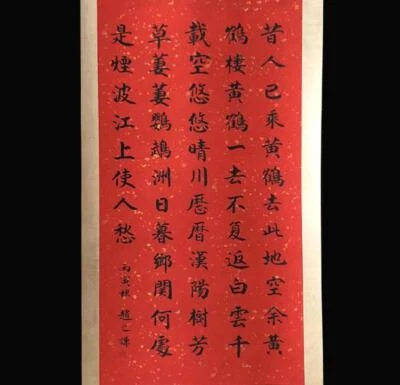 昔人已乘黃鶴去此地空余黃
鶴樓黃鶴一去不复返白雲千
載空悠悠晴川歷曆漢陽樹芳
草萋萋鸚鵡洲日暮鄉関何處
是煙波江上使人愁
丙寅秋 趙之謙